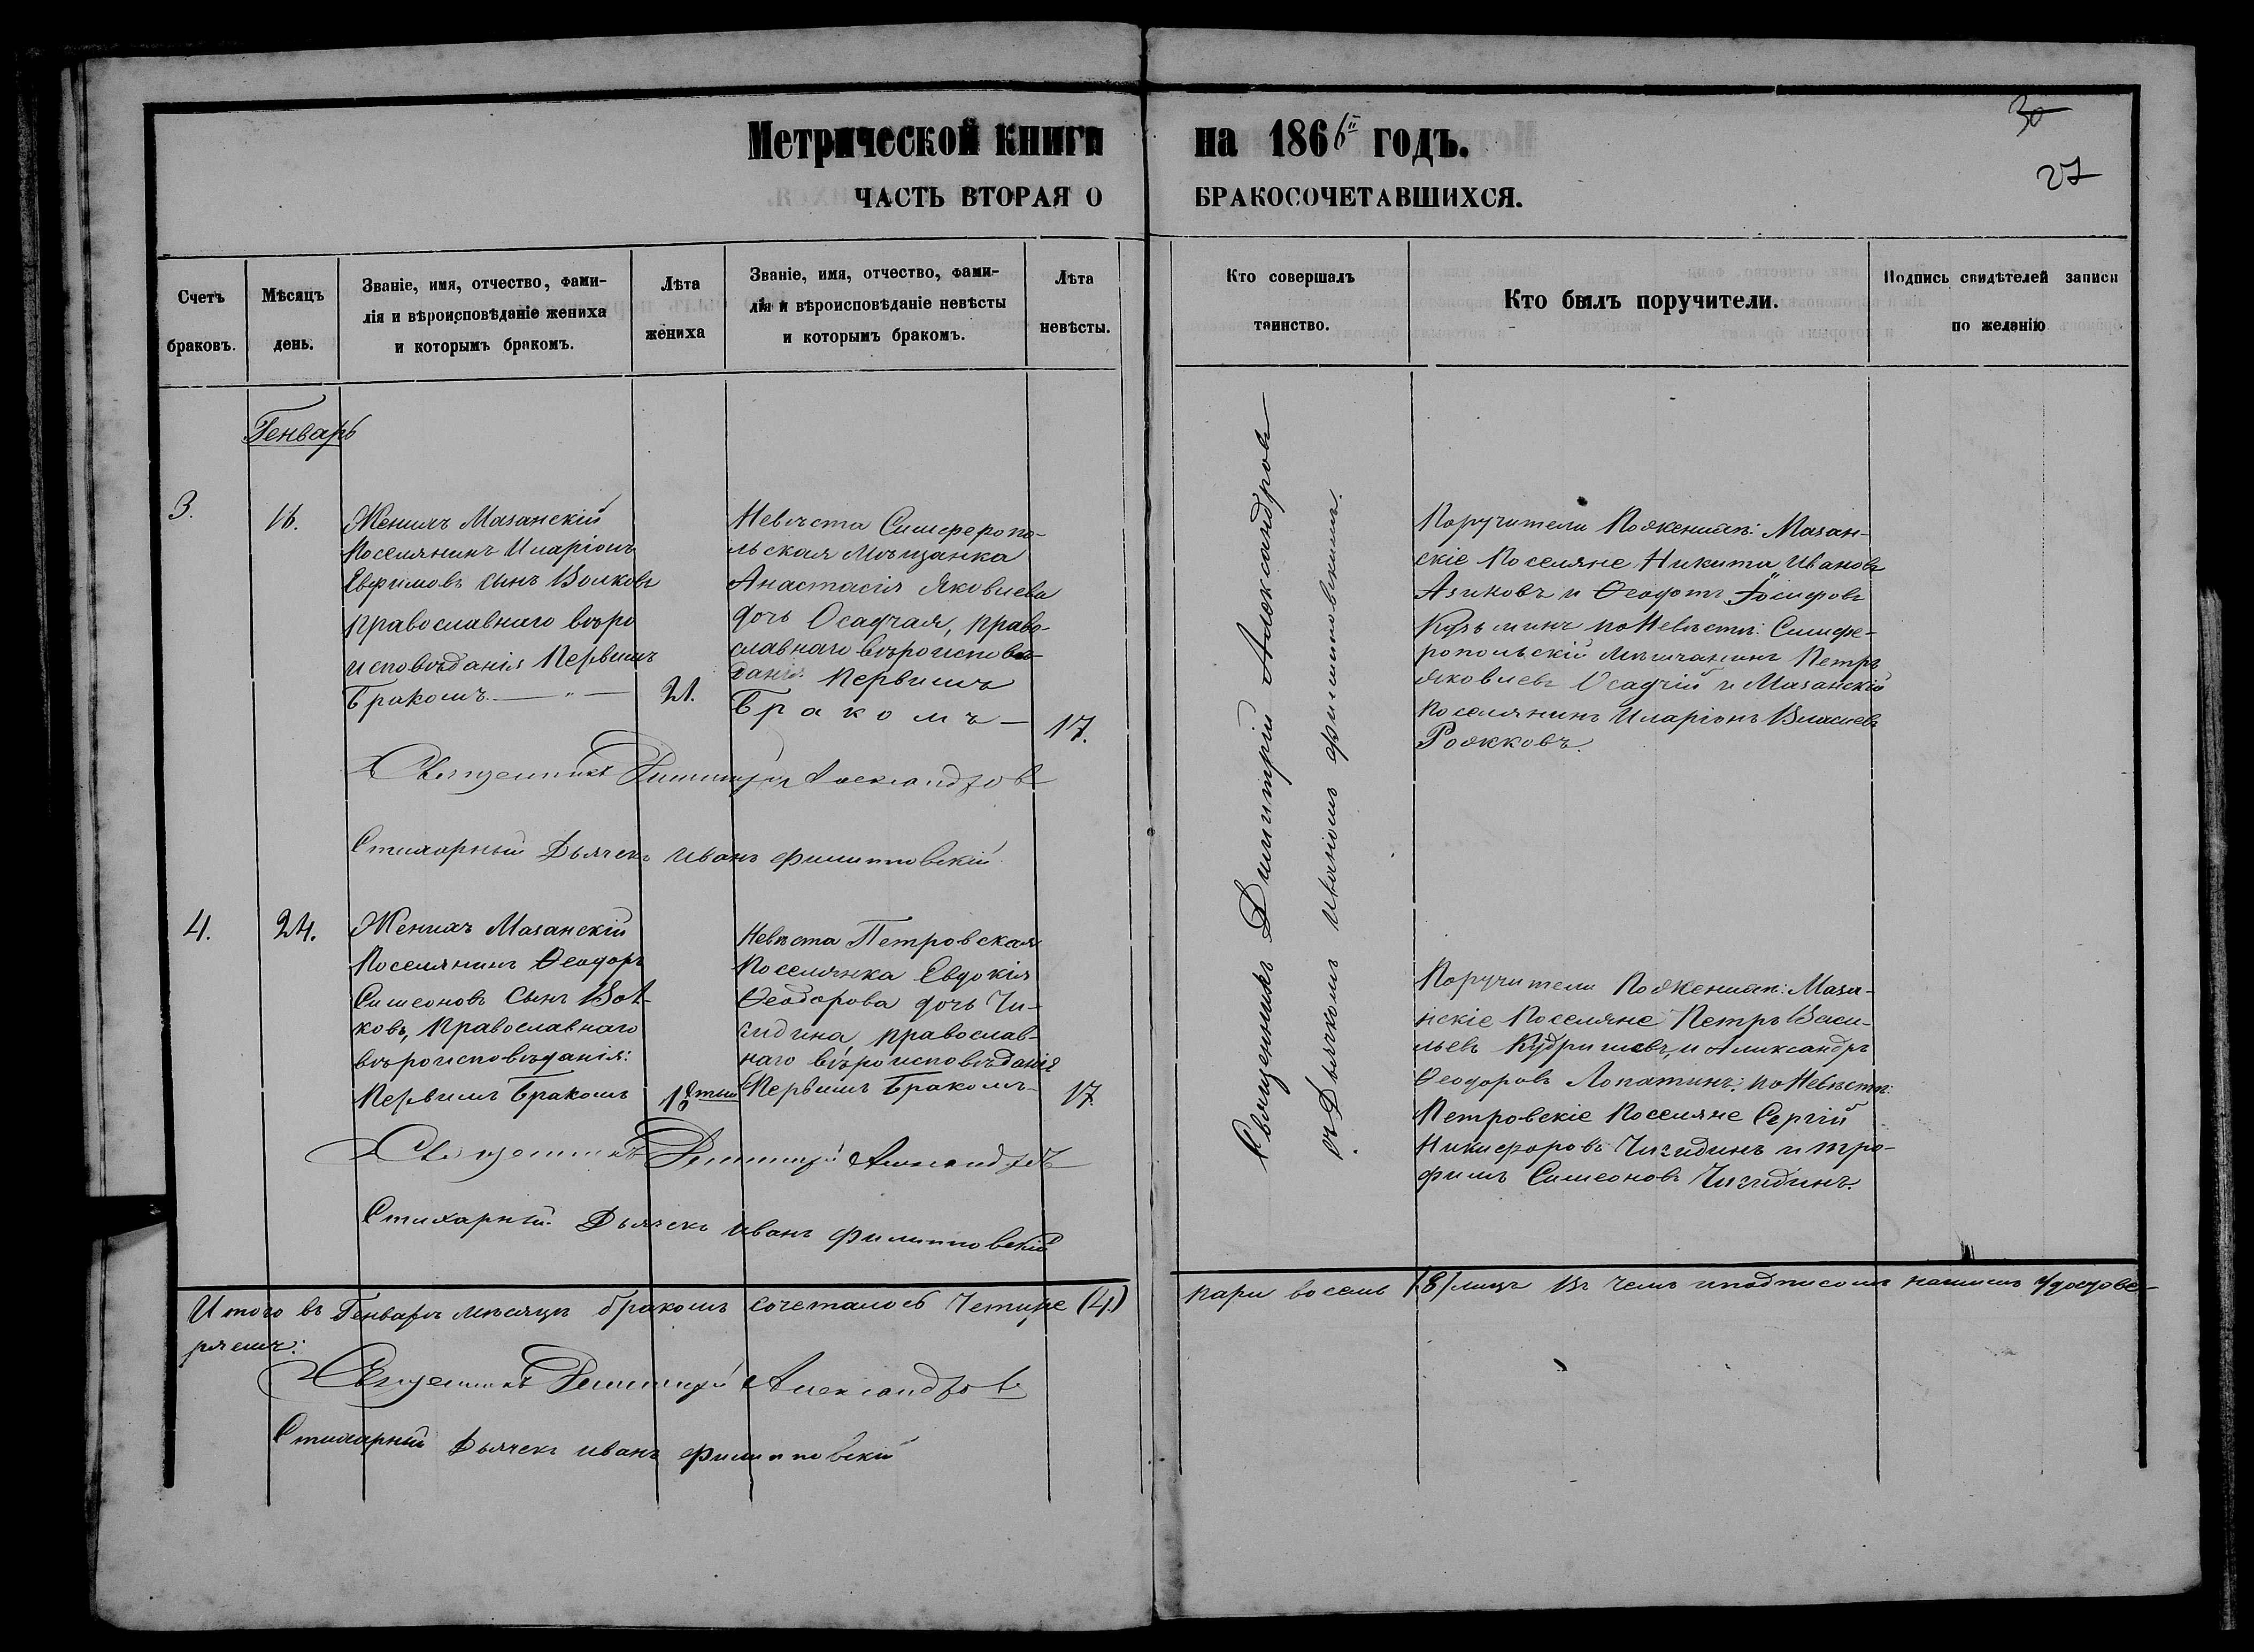 30
27
Метрической книги на 1866й годъ.
ЧАСТЬ ВТОРАЯ О БРАКОСОЧЕТАВШИХСЯ.
Счетъ браковъ.
Мѣсяцъ день.
Званіе, имя, отчество, фами-
лія и вѣроисповѣданіе жениха
и которымъ бракомъ.
Лѣта жениха
Званіе, имя, отчество, фами-
лія и вѣроисповѣданіе невѣсты
и которымъ бракомъ.
Лѣта невѣсты.
Кто совершалъ таинство.
Кто былъ поручители.
Подпись свидѣтелей записи по желанію
Генварь
3.
16.
Женихъ Мазанскій
Поселянинъ Иларіонъ
Евфимовъ сынъ Волковъ
православнаго вѣро
исповѣданія Первымъ
Бракомъ — " —
21.
Невѣста Симферопо-
льская Мѣщанка
Анастасія Яковлева
дочь Осадчая, право-
славнаго вѣроисповѣ-
данія Первымъ
Бракомъ —
17.
Священникъ Димитрій Александровъ
Стихарный Дьячекъ Иванъ Филипповскій
Поручители По Женихѣ: Мазан-
скіе Поселяне Никита Ивановъ
Азиковъ и Ѳеодотъ Іосифовъ
Кузьминъ по Невѣстѣ: Симфе-
ропольскій Мѣщанинъ Петръ
Яковлевъ Осадчій и Мазанскій
Поселянинъ Иларіонъ Власіевъ
Рожковъ.
4.
24.
Женихъ Мазанскій
Поселянинъ Ѳеодоръ
Симеоновъ Сынъ Вол-
ковъ, Православнаго
вѣроисповѣданія:
Первымъ Бракомъ
18тый
Невѣста Петровская
Поселянка Евдокія
Ѳеодорова дочь Чи-
гидина, православ-
наго вѣроисповѣданія
Первымъ Бракомъ
17.
Священникъ Димитрій Александровъ
Стихарный Дьячекъ Иванъ Филипповскій
Поручители По Женихѣ: Маза-
нскіе Поселяне Петръ Васи-
льевъ и Александръ
Ѳеодоровъ Лопатинъ: по Невѣстѣ:
Петровскіе Поселяне Сергій
Никифоровъ Чигидинъ и Тро-
фимъ Симеоновъ Чигидинъ.
Священникъ Димитрій Александровъ
съ Дьячкомъ Иваномъ Филипповскимъ.
Итого въ Генварѣ мѣсяцѣ бракомъ сочеталось Четыре (4) пары восемь (8) лицъ Въ чемъ и подписомъ нашимъ удостове-
ряемъ:
Священникъ Димитрій Александровъ
Стихарный Дьячекъ Иванъ Филипповскій